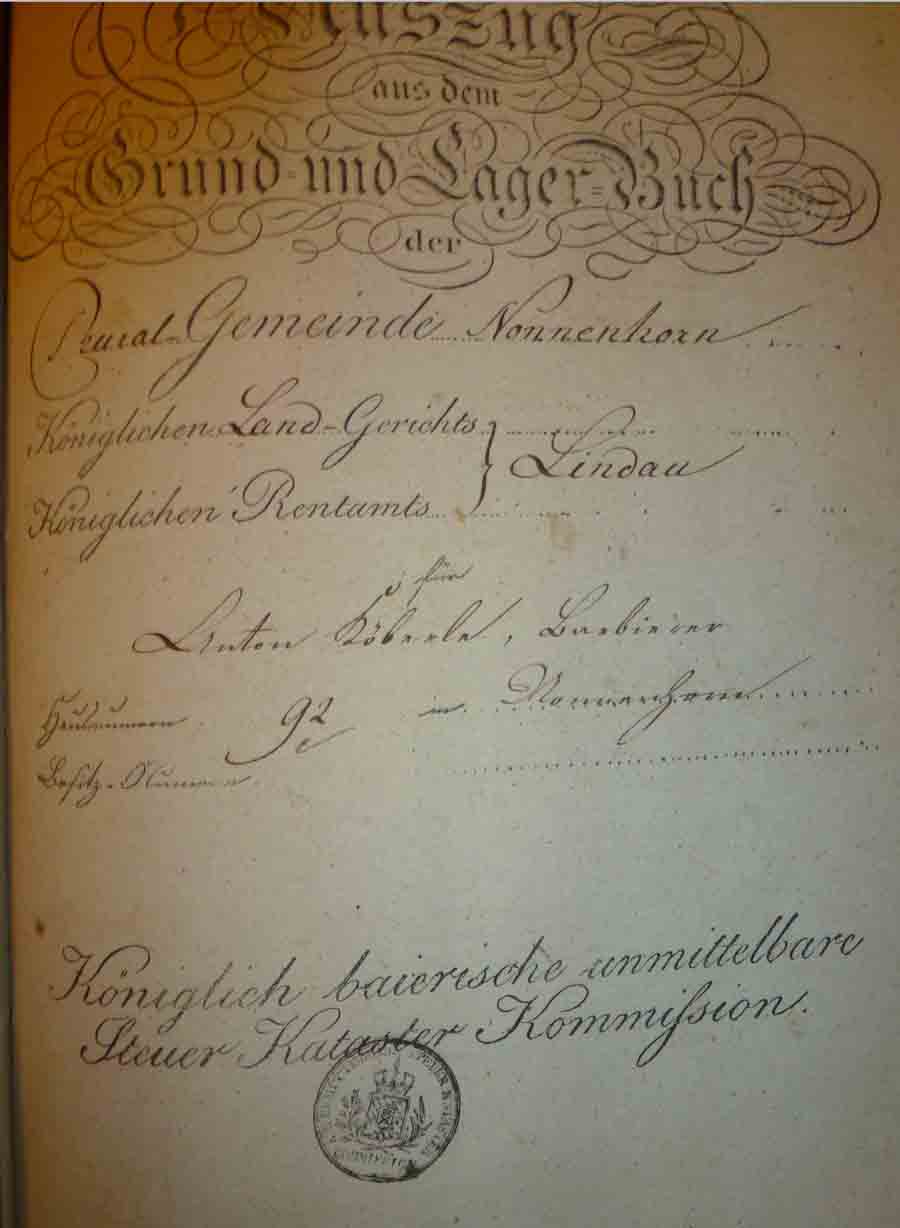 Auszug
aus dem
Grund- und Lager-Buch
der
Rural-Gemeinde Nonnenhorn
Königlichen Land-Gerichts
Lindau
Königlichen Rentamts
für
Anton Köberle, Barbierer
Hausnummern 92 in Nonnenhorn
Besitz-Nummern
Königlich baierische unmittelbare
Steuer Kataster Kommißion.
STEUER KATASTER